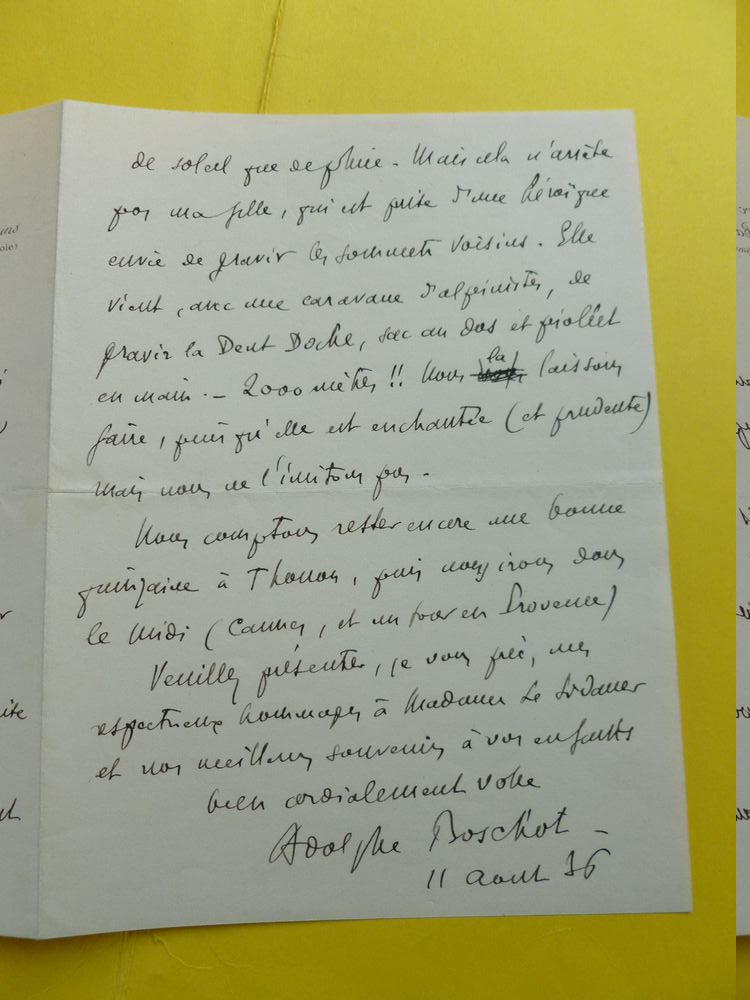 de soleil que de pluie. Mais cela n'arrête
pas ma fille, qui est prise d'une héroïque
envie de gravir les sommets voisins. Elle
vient, avec une caravane d'alpinistes, de
gravir la Dent Doche, sac au dos et piollet
en main. - 2000 mètres !! Nous la laissons
faire, puisqu'elle est enchantée (et prudente)
mais nous ne l'imitons pas.
Nous comptons rester encore une bonne
quinzaine à Thonon, puis nous irons dans
le Midi (Cannes, et un tour en Provence)
Veuillez présenter, je vous prie, mes
respectueux hommages à Madame Le Sidaner
et nos meilleurs souvenirs à vos enfants
bien cordialement votre
Adolphe Boschot -
11 aout 36